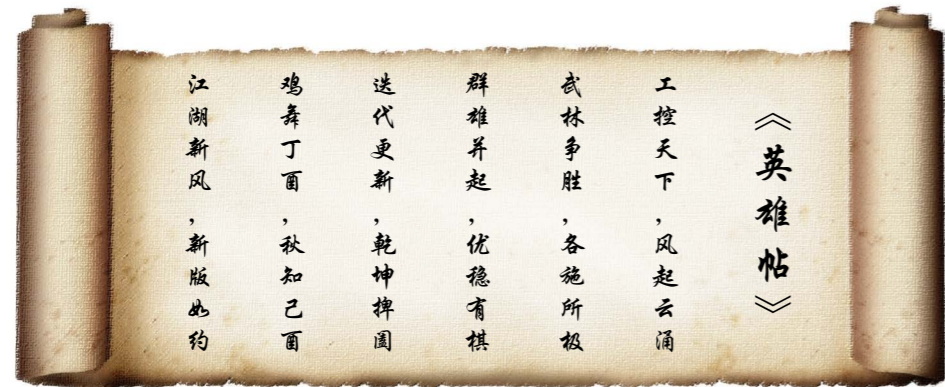 《英雄帖》
工控天下,风起云涌
武林争胜,各施所极
群雄并起,优稳有棋
迭代更新,乾坤捭阖
鸡舞丁酉,秋知己酉
江湖新风,新版如约